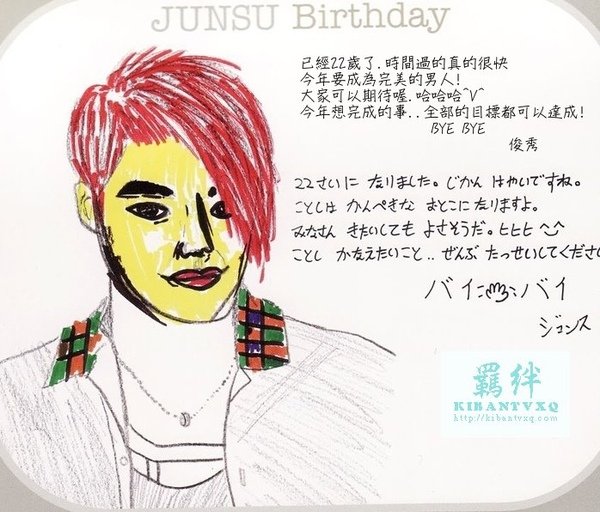 JUNSU Birthday
已經22歲了.時間過的真的很快
今年要成為完美的男人!
大家可以期待喔.哈哈哈^V^
今年想完成的事..全部的目標都可以達成!
BYE BYE
俊秀
22さいに なりました。じかん はやいですね。
ことしは かんぺきな おとこに なりますよ。
みなさん きたいしても よさそうだ。ヒヒヒ ^^
ことし かなえたいこと.. ぜんぶ たっせいしてくださ
バイ バイ
ジュンス
羈絆
KIBANTVXQ
http://kibantvxq.com